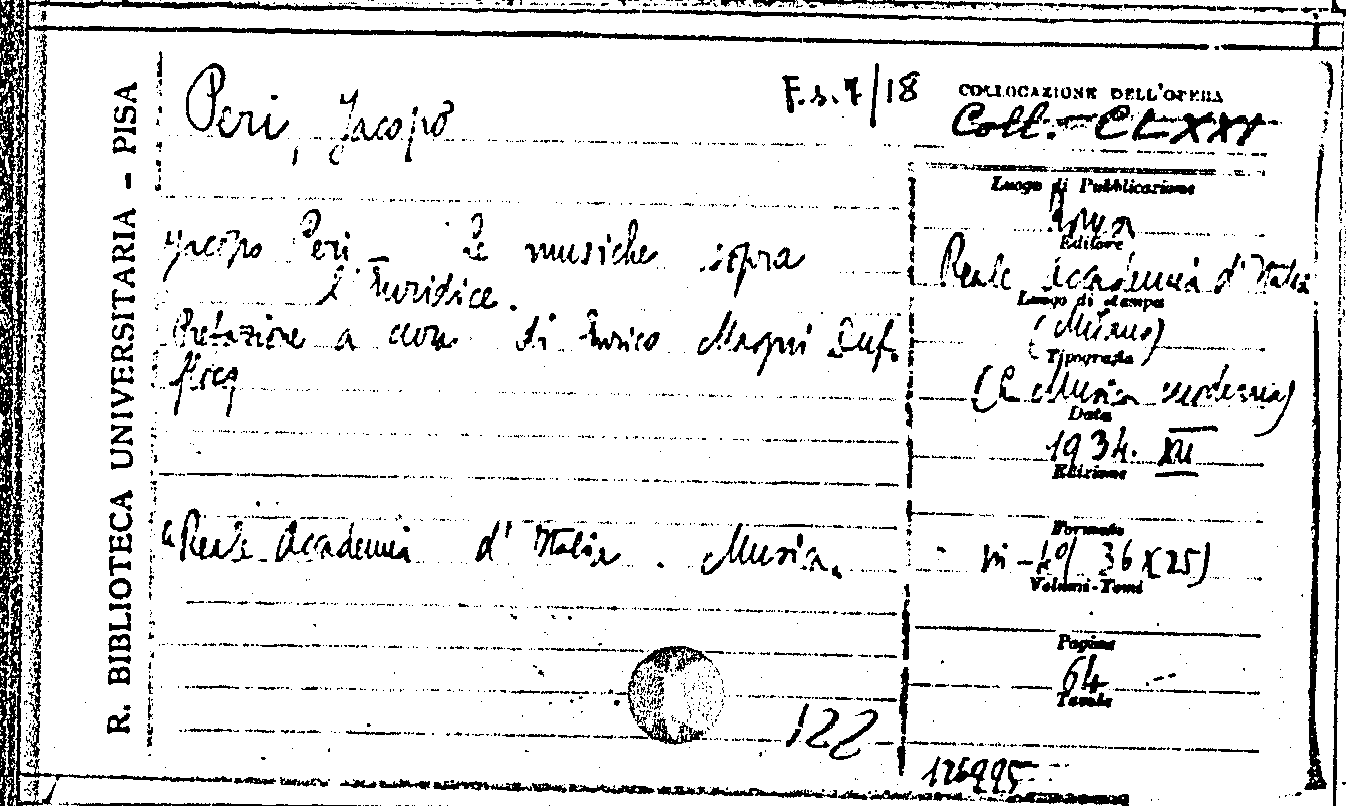 R. BIBLIOTECA UNIVERSITARIA - PISA
Peri, Jacopo
F.s.7/18
COLLOCAZIONE DELL'OPERA
Coll. CLXXI
Jacopo Peri _ Le musiche sopra
l'Euridice.
Prefazione a cura di Enrico Magni Duf-
flocq
"Reale Accademia d'Italia. Musica"
122
Luogo di Pubblicazione
Roma
Editore
Reale Accademia d'Italia
Luogo di stampa
(Milano)
Tipografia
(La Musica moderna)
Data
1934. XII
Edizione
Formato
in-4º/ 36x(25)
Volumi-Tomi
Pagine
64
Tavole
126995